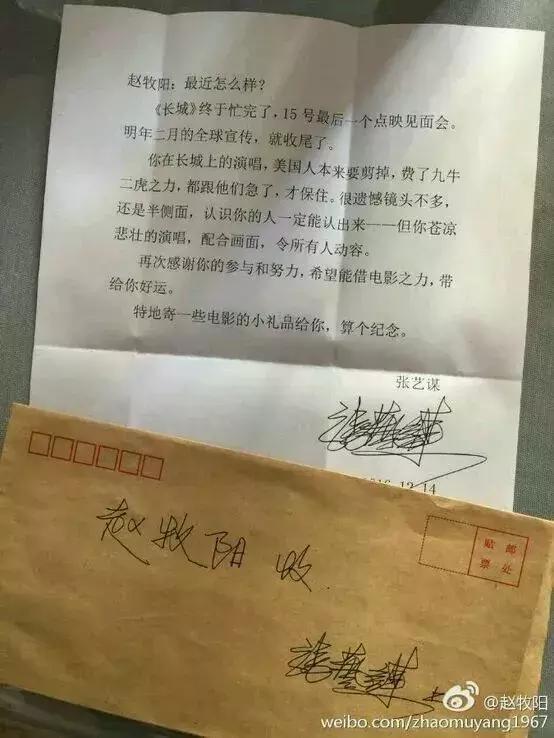 赵牧阳：最近怎么样？
《长城》终于忙完了，15号最后一个点映见面会。
明年二月的全球宣传，就收尾了。
你在长城上的演唱，美国人本来要剪掉，费了九牛
二虎之力，都跟他们急了，才保住。很遗憾镜头不多，
还是半侧面，认识你的人一定能认出来——但你苍凉
悲壮的演唱，配合画面，令所有人动容。
再次感谢你的参与和努力，希望能借电影之力，带
给你好运。
特地寄一些电影的小礼品给你，算个纪念。
张艺谋
张艺谋
12.14
赵牧阳 收
贴 邮
票 处
张艺谋
@赵牧阳
weibo.com/zhaomuyang1967